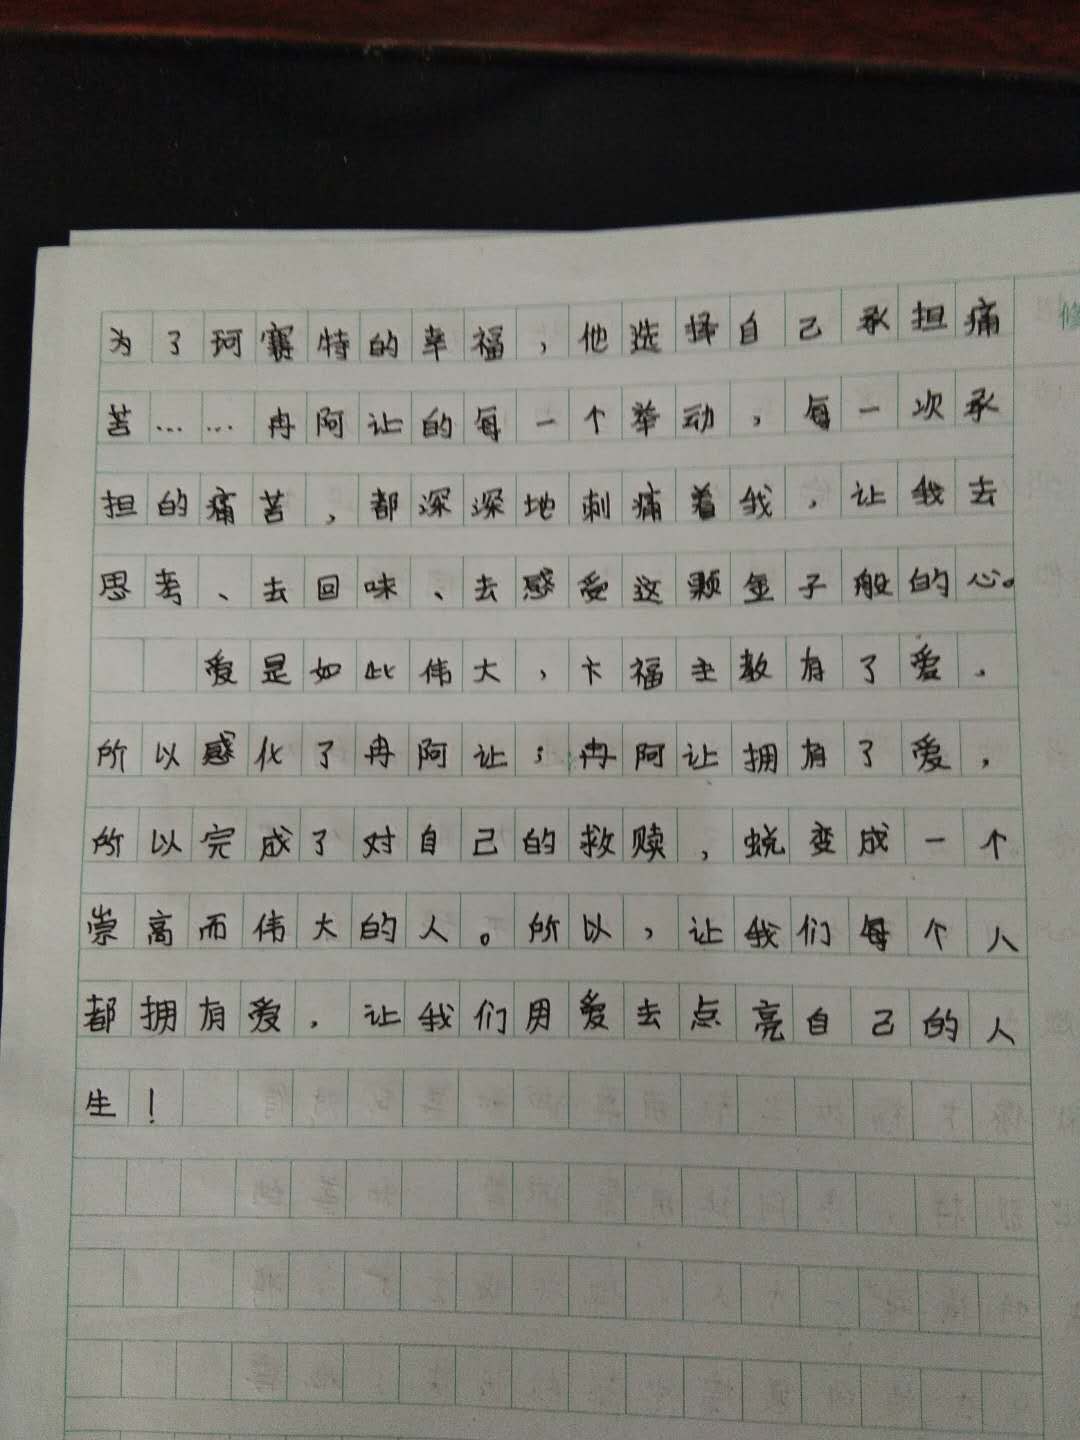 为了珂赛特的幸福，他选择自己承担痛
苦……冉阿让的每一个举动，每一次承
担的痛苦，都深深地刺痛着我，让我去
思考、去回味、去感受这颗金子般的心。
爱是如此伟大，卞福主教有了爱，
所以感化了冉阿让；冉阿让拥有了爱，
所以完成了对自己的救赎，蜕变成一个
崇高而伟大的人。所以，让我们每个人
都拥有爱，让我们用爱去点亮自己的人
生！
修